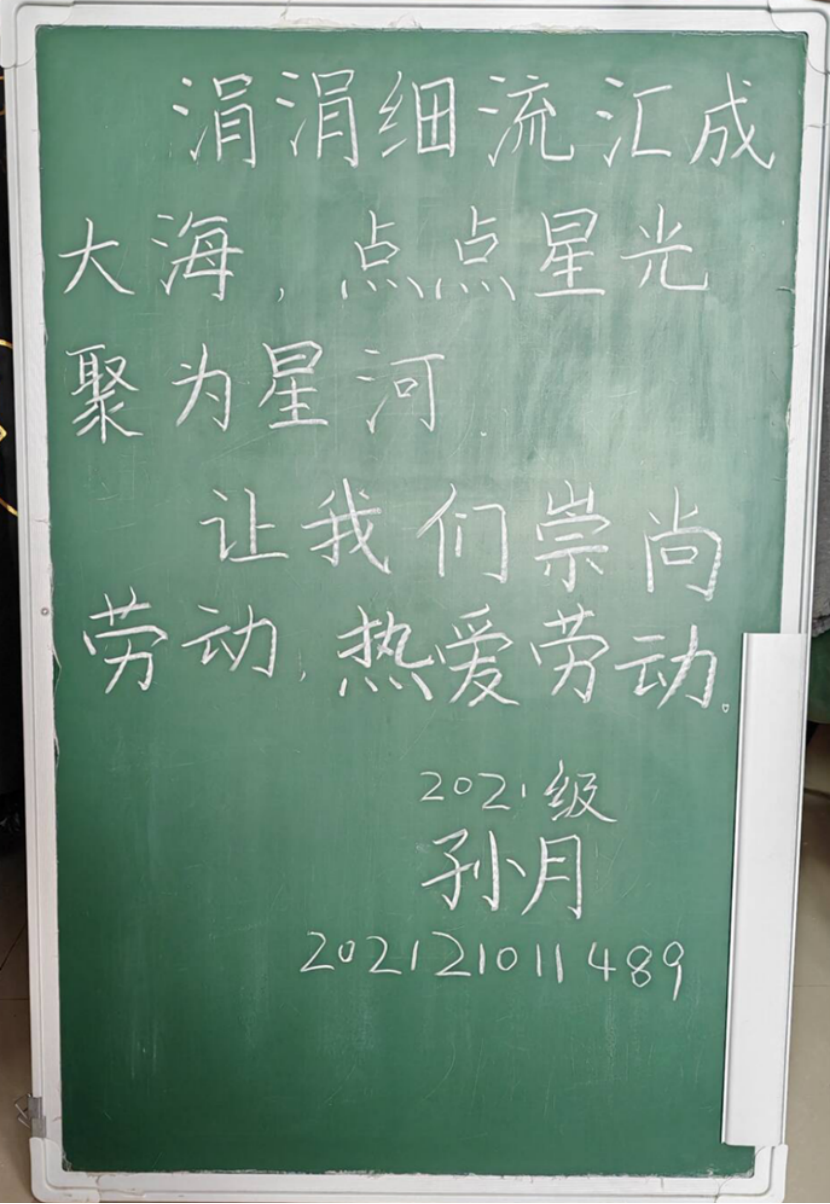 涓涓细流汇成
大海，点点星光
聚为星河.
让我们崇尚
劳动，热爱劳动。
2021级
孙月
202121011489